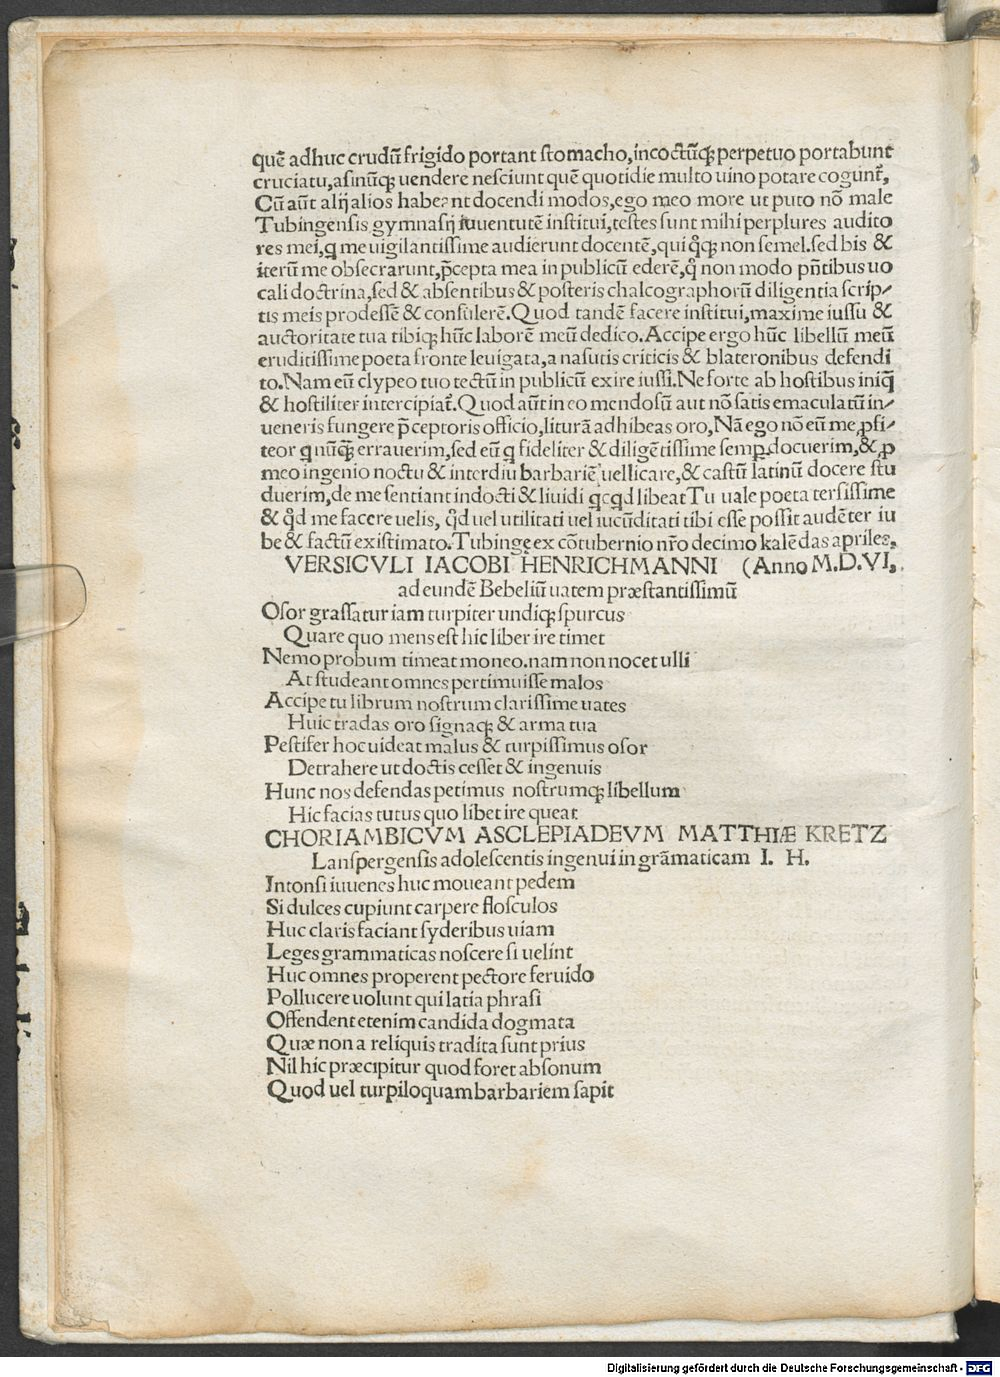 quē adhuc crudū frigido portant stomacho, incoctūq; perpetuo portabunt
cruciatu, asinūq; uendere nesciunt quē quotidie multo uino potare cogunt᷑,
Cū aūt alij alios habent docendi modos, ego meo more ut puto nō male
Tubingensis gymnasij iuuentutē institui, testes sunt mihi perplures audito
res mei, q me uigilantissime audierunt docentē, qui q̊q; non semel. sed bis &
iterū me obsecrarunt, p̄cepta mea in publicū ederē, q̊ non modo pn̄tibus uo
cali doctrina, sed & absentibus & posteris chalcographorū diligentia scrip/
tis meis prodessē & consulerē. Quod tandē facere institui, maxime iussu &
auctoritate tua tibiq; hūc laborē meū dedico. Accipe ergo hūc libellū meū
eruditissime poeta fronte leuigata, a nasutis criticis & blateronibus defendi
to. Nam eū clypeo tuo tectū in publicū exire iussi. Ne forte ab hostibus iniq̄
& hostiliter intercipiat᷑. Quod aūt in eo mendosū aut nō satis emaculatū in/
ueneris fungere p̄ceptoris officio, liturā adhibeas oro, Nā ego nō eū me ꝓfi/
teor q nūq̄ꝫ errauerim, sed eū q fideliter & diligētissime semꝑ docuerim, & ꝓ
meo ingenio noctu & interdiu barbariē uellicare, & castū latinū docere stu
duerim, de me sentiant indocti & liuidi qcqd libeat Tu uale poeta tersissime
& q̊d me facere uelis, q̊d uel utilitati uel iucūditati tibi esse possit audēter iu
be & factū existimato. Tubingę ex cōtubernio nr̄o decimo kalēdas apriles,
VERSICVLI IACOBI HENRICHMANNI (Anno M.D.VI,.
ad eundē Bebeliū uatem præstantissimū
Osor grassatur iam turpiter undiq; spurcus
Quare quo mens est hic liber ire timet
Nemo probum timeat moneo. nam non nocet ulli
At studeant omnes pertimuisse malos
Accipe tu librum nostrum clarissime uates
Huic tradas oro signaq; & arma tua
Pestifer hoc uideat malus & turpissimus osor
Detrahere ut doctis cesset & ingenuis
Hunc nos defendas petimus nostrumq; libellum
Hic facias tutus quo libet ire queat
CHORIAMBICVM ASCLEPIADEVM MATTHIÆ KRETZ
Lanspergensis adolescentis ingenui in grāmaticam I. H.
Intonsi iuuenes huc moueant pedem
Si dulces cupiunt carpere flosculos
Huc claris faciant syderibus uiam
Leges grammaticas noscere si uelint
Huc omnes properent pectore feruido
Pollucere uolunt qui latia phrasi
Offendent etenim candida dogmata
Quæ non a reliquis tradita sunt prius
Nil hic præcipitur quod foret absonum
Quod uel turpiloquam barbariem sapit
Digitalisierung gefördert durch die Deutsche Forschungsgemeinschaft - DFG